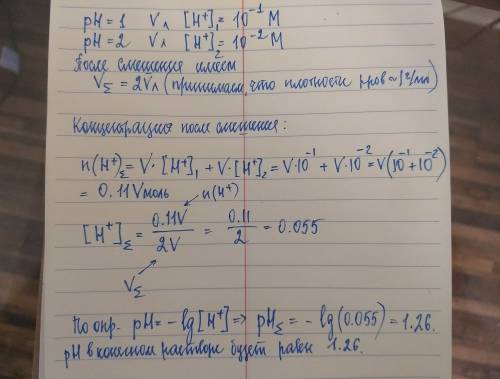 pH = 1 V л [H⁺]₁ = 10⁻¹ M
pH = 2 V л [H⁺]₂ = 10⁻² M
После смешения имеем
V_Σ = 2V л (принимаем, что плотности р-ров ≈ 1 г/мл)
Концентрация после смешения:
n(H⁺)_Σ = V·[H⁺]₁ + V·[H⁺]₂ = V·10⁻¹ + V·10⁻² = V(10⁻¹ + 10⁻²)
= 0.11 V моль
n(H⁺)
[H⁺]_Σ = 0.11V / 2V = 0.11 / 2 = 0.055
V_Σ
По опр. pH = −lg[H⁺] => pH_Σ = −lg(0.055) = 1.26.
pH в конечном растворе будет равен 1.26.